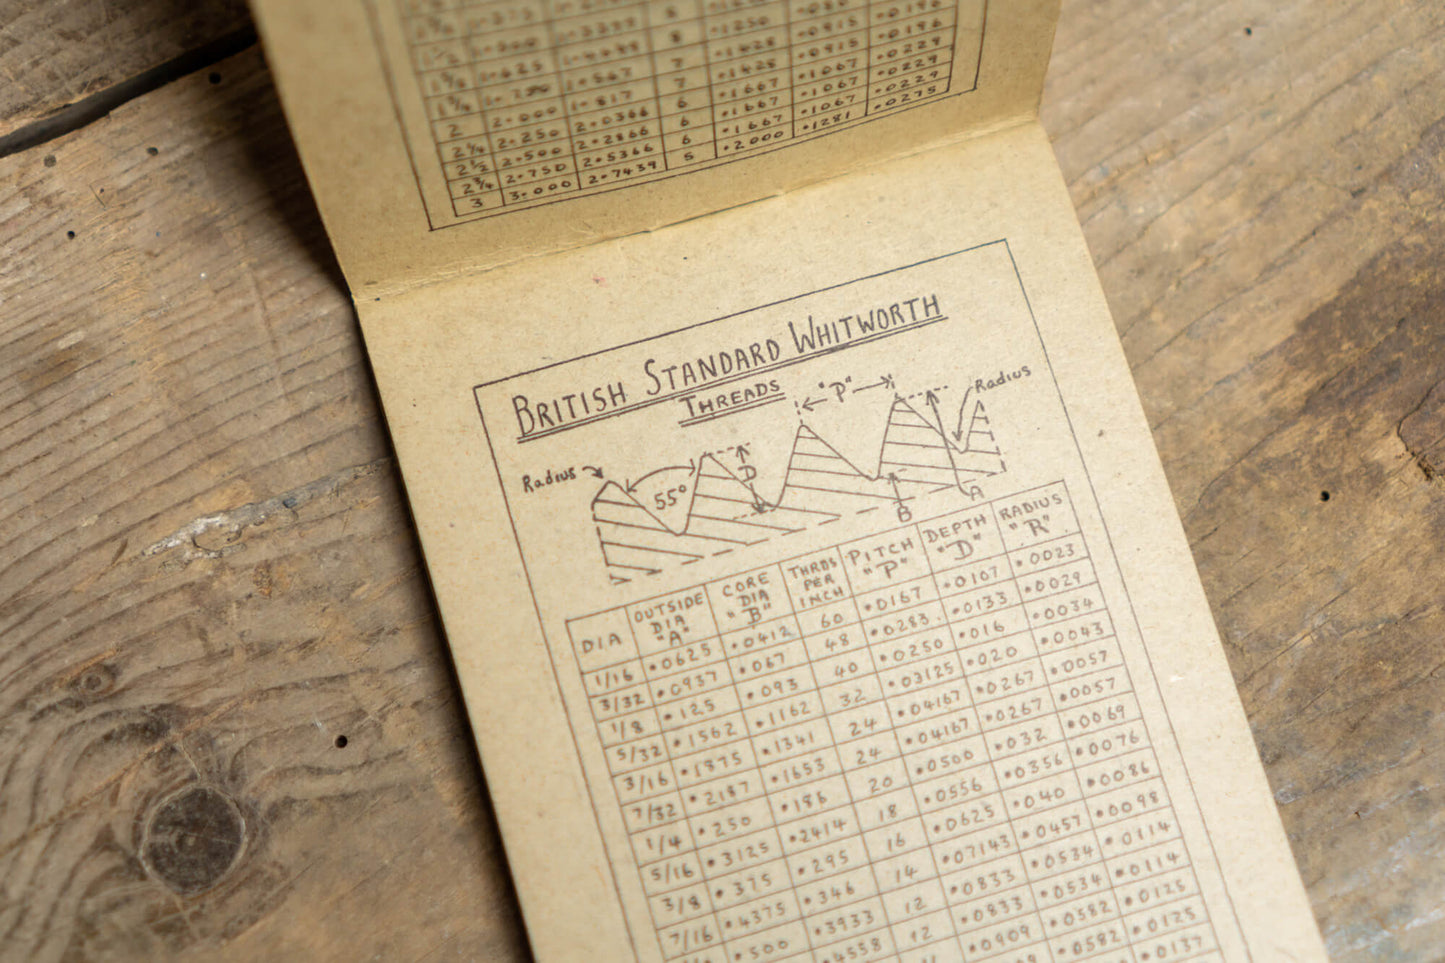 1½ 1.500 8
1⅝ 1.625 1.4089 8 .1250 .0186
1¾ 1.750 1.567 7 .1428 .0915 .0196
2 2.000 1.817 7 .1428 .0915 .0229
2¼ 2.250 2.0366 6 .1667 .1067 .0229
2½ 2.500 2.2866 6 .1667 .1067 .0229
2¾ 2.750 2.5366 6 .1667 .1067 .0229
3 3.000 2.7439 5 .2000 .1281 .0275
BRITISH STANDARD WHITWORTH
THREADS
"P"
Radius
Radius
55°
D
B
A
DIA OUTSIDE DIA "A" CORE DIA "B" THRDS PER INCH PITCH "P" DEPTH "D" RADIUS "R"
1/16 .0625 .0412 60 .0167 .0107 .0023
3/32 .0937 .067 48 .0283 .0133 .0029
1/8 .125 .093 40 .0250 .016 .0034
5/32 .1562 .1162 32 .03125 .020 .0043
3/16 .1875 .1341 24 .04167 .0267 .0057
7/32 .2187 .1653 24 .04167 .0267 .0057
1/4 .250 .186 20 .0500 .032 .0069
5/16 .3125 .2414 18 .0556 .0356 .0076
3/8 .375 .295 16 .0625 .040 .0086
7/16 .4375 .346 14 .07143 .0457 .0098
.500 .3933 12 .0833 .0534 .0114
.4558 12 .0833 .0534 .0114
.0909 .0582 .0125
.0582 .0125
.0137